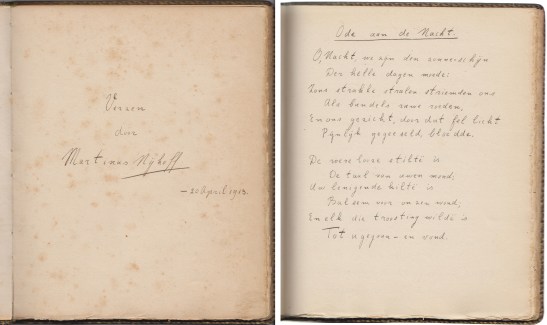 Verzen
door
Martinus Nijhoff
— 20 April 1913.
Ode aan de Nacht.
O, Nacht, we zijn den zonneschijn
Der helle dagen moede:
Zijne strakke stralen striemden ons
Als bundels rauwe roeden,
En ons gezicht, door dat fel licht
Pijnlijk gegeeseld, bloedde.
De wezelooze stilte is
De taal van uwen mond;
Uw lenigende kilte is
Balsem voor onzen wond;
En elk die troosting wilde is
Tot u gegaan — en vond.